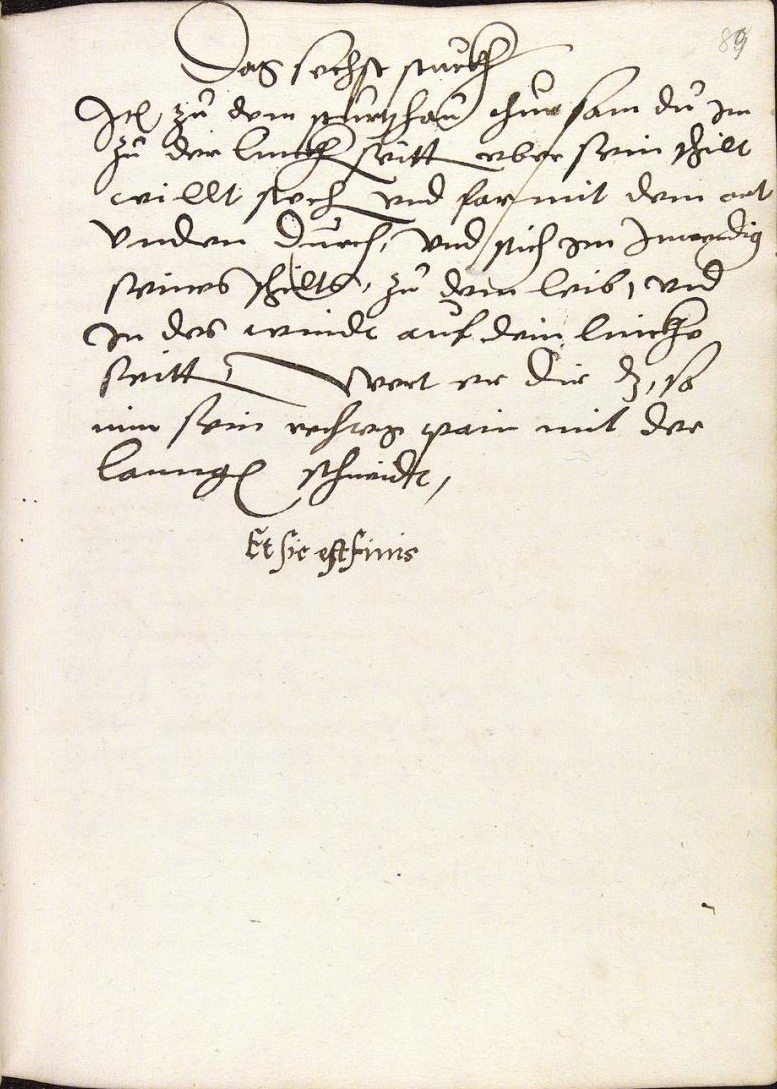 89
Das sechst stuckh
Itē zu dem sturtzhau thue sam du Im
zu der linckh seitt vber sein schilt
willt stech vnd far mit dem ort
vnden durch, vnd stich Im Inwendig
seines schilts, zu dem leib, vnd
In des windt auf dein lincke
seitt, Wert er dir dz, so
nim sein rechtes pain mit der
lannge schneidt,
Et sic est finis